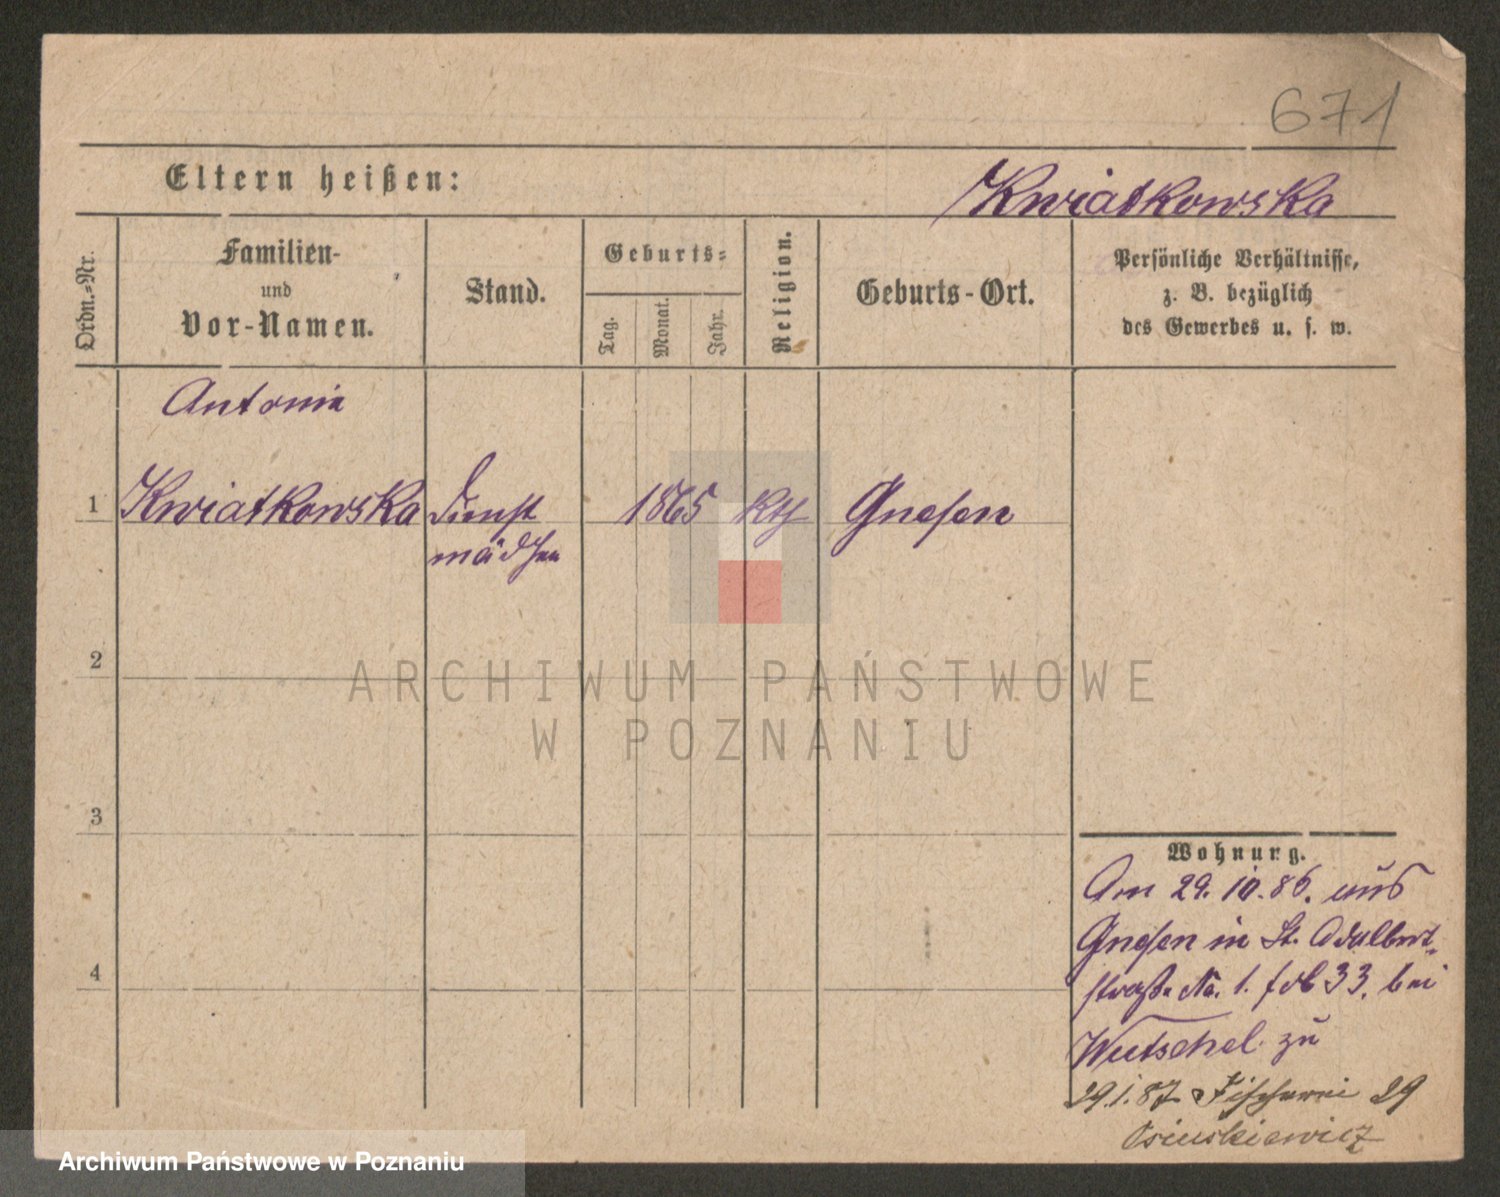 671
Eltern heißen:
Kwiatkowska
Ordn.=Nr.
Familien-
und
Vor-Namen.
Stand.
Geburts=
Tag.
Monat.
Jahr.
Religion.
Geburts-Ort.
Persönliche Verhältnisse,
z. B. bezüglich
des Gewerbes u. s. w.
Antonia
1 Kwiatkowska Dienst 1865 kth Gnesen
mädchen
2
3
4
ARCHIWUM PAŃSTWOWE
W POZNANIU
Wohnung.
Am 29. 10. 86. aus
Gnesen in St. Adalbert-
straße No. 1. 33. bei
Wutschel zu
29.1.87 Fischerei 29
Osinskiewicz
Archiwum Państwowe w Poznaniu